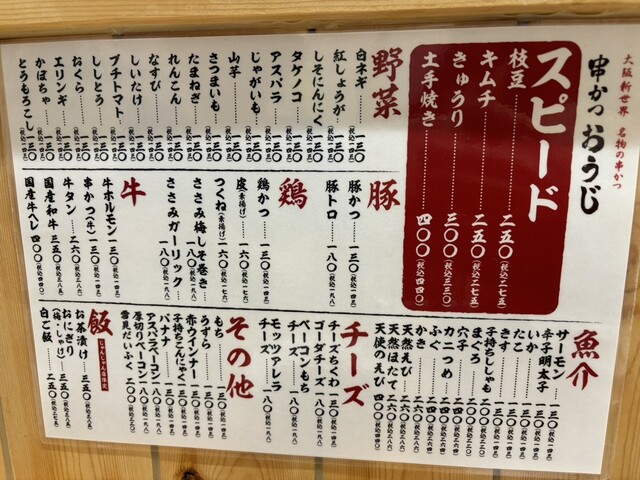 大阪新世界 名物の串かつ
串かつ おうじ
スピード
枝豆 二五〇(税込二七五)
キムチ 二五〇(税込二七五)
きゅうり 三〇〇(税込三三〇)
土手焼き 四〇〇(税込四四〇)
野菜
白ネギ 一三〇(税込一四三)
紅しょうが 一三〇(税込一四三)
しそにんにく 一三〇(税込一四三)
タケノコ 一三〇(税込一四三)
アスパラ 一三〇(税込一四三)
じゃがいも 一三〇(税込一四三)
山芋 一三〇(税込一四三)
さつまいも 一三〇(税込一四三)
たまねぎ 一三〇(税込一四三)
れんこん 一三〇(税込一四三)
なすび 一三〇(税込一四三)
しいたけ 一三〇(税込一四三)
プチトマト 一三〇(税込一四三)
ししとう 一三〇(税込一四三)
おくら 一三〇(税込一四三)
エリンギ 一三〇(税込一四三)
かぼちゃ 一三〇(税込一四三)
とうもろこし 一三〇(税込一四三)
豚
豚かつ 一三〇(税込一四三)
豚トロ 一八〇(税込一九八)
鶏
鶏かつ 一三〇(税込一四三)
皮(素揚げ) 一六〇(税込一七六)
つくね(素揚げ) 一六〇(税込一七六)
ささみ梅しそ巻き 一八〇(税込一九八)
ささみガーリック 一八〇(税込一九八)
牛
牛ホルモン 一三〇(税込一四三)
串かつ(牛) 一三〇(税込一四三)
牛タン 二六〇(税込二八六)
国産和牛 三五〇(税込三八五)
国産牛ヘレ 四〇〇(税込四四〇)
魚介
サーモン 一三〇(税込一四三)
辛子明太子 一三〇(税込一四三)
いか 一三〇(税込一四三)
たこ 一三〇(税込一四三)
きす 一三〇(税込一四三)
子持ちししゃも 一三〇(税込一四三)
まぐろ 二四〇(税込二六四)
穴子 二四〇(税込二六四)
カニつめ 二四〇(税込二六四)
ふぐ 二四〇(税込二六四)
かき 二六〇(税込二八六)
天然えび 二六〇(税込二八六)
天然ほたて 二六〇(税込二八六)
天使のえび 四〇〇(税込四四〇)
チーズ
チーズちくわ 一三〇(税込一四三)
ゴーダチーズ 一八〇(税込一九八)
ベーコンもち
チーズ 一八〇(税込一九八)
モッツァレラ
チーズ 一八〇(税込一九八)
その他
もち 一三〇(税込一四三)
うずら 一三〇(税込一四三)
赤ウインナー 一三〇(税込一四三)
子持ちこんにゃく 一三〇(税込一四三)
バナナ 一三〇(税込一四三)
アスパラベーコン 一八〇(税込一九八)
厚切りベーコン 一八〇(税込一九八)
雪見だいふく 二〇〇(税込二二〇)
飯
じゃんじゃん店限定
お茶漬け 三五〇(税込三八五)
おにぎり
(梅・しゃけ) 三五〇(税込三八五)
白ご飯 二五〇(税込二七五)